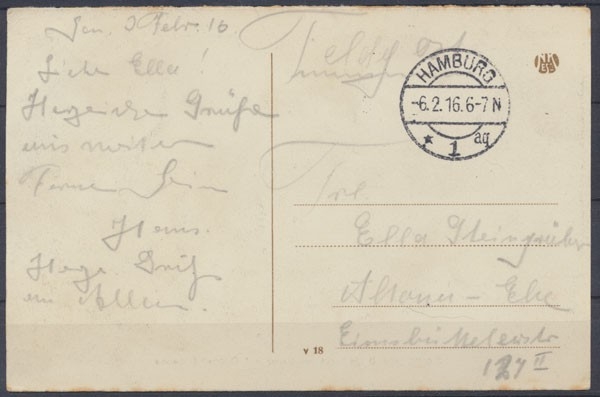 Febr. 16
Liebe Ella!
Herzliche Grüße
aus weiter
Ferne Dein
Hans.
Herzl. Grüße
an Allen.
Feldpost
HAMBURG
-6.2.16.6-7N
* 1 äq
Frl.
Ella Steingräber
Altona - Elbe
Eimsbüttelerstr
127 II
v 18